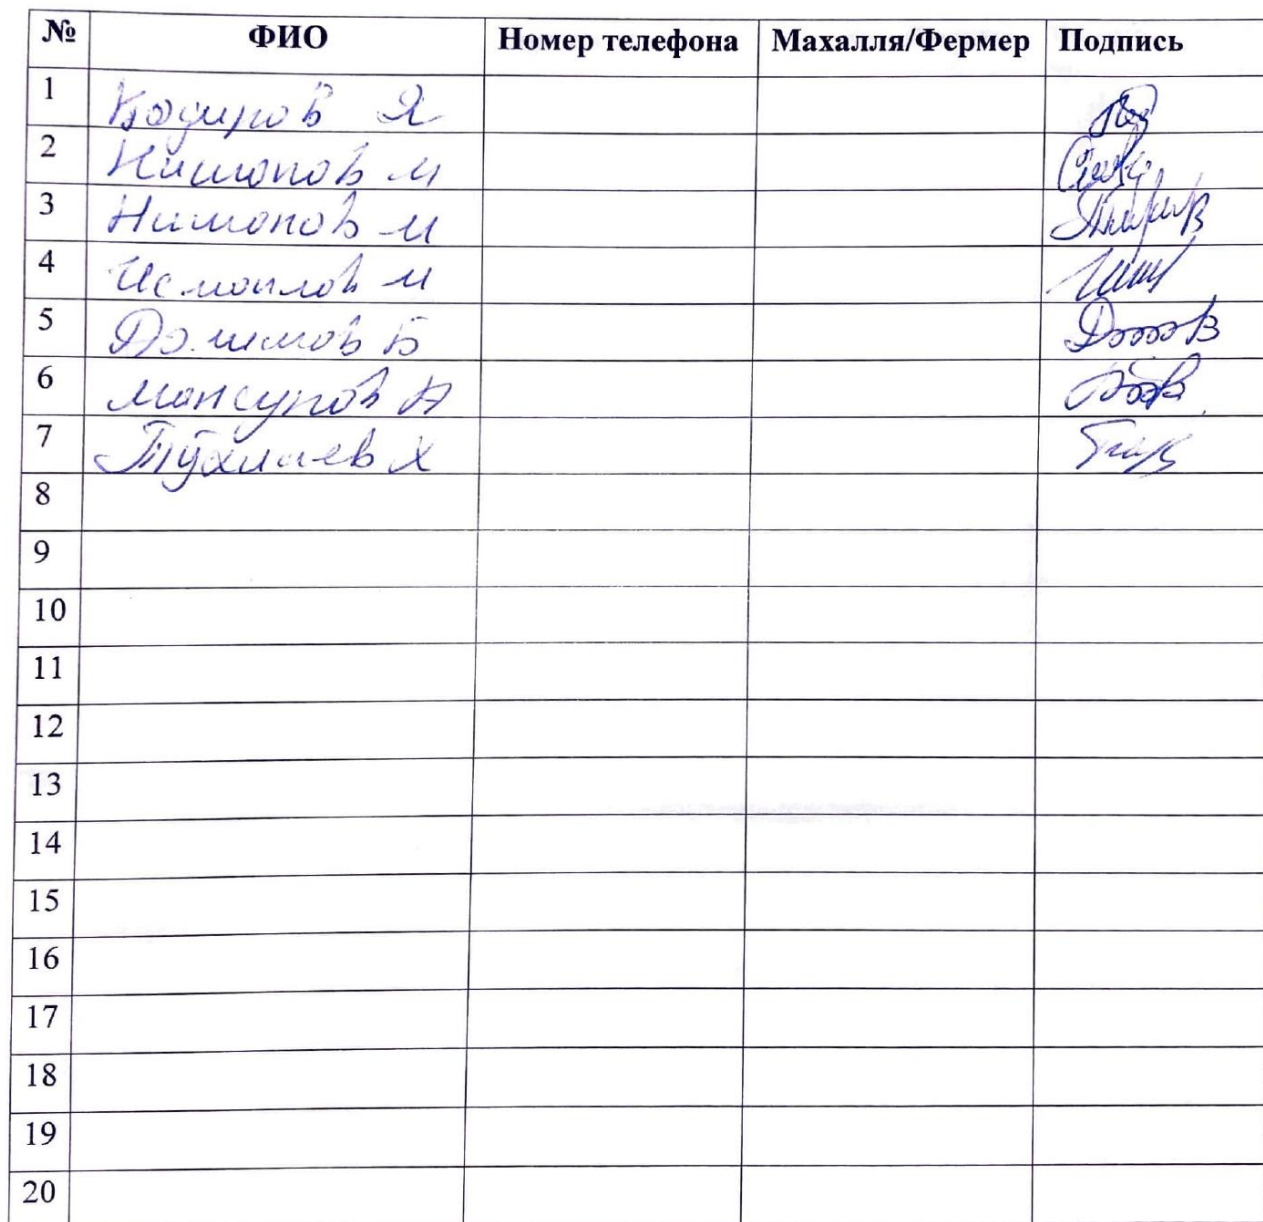 № ФИО Номер телефона Махалля/Фермер Подпись
1 Кодиров Я
2 Нишонов М
3 Нишонов М
4 Исмоилов М
5 Долимов Б
6 Мансуров А
7 Тўхлиев Х
8
9
10
11
12
13
14
15
16
17
18
19
20